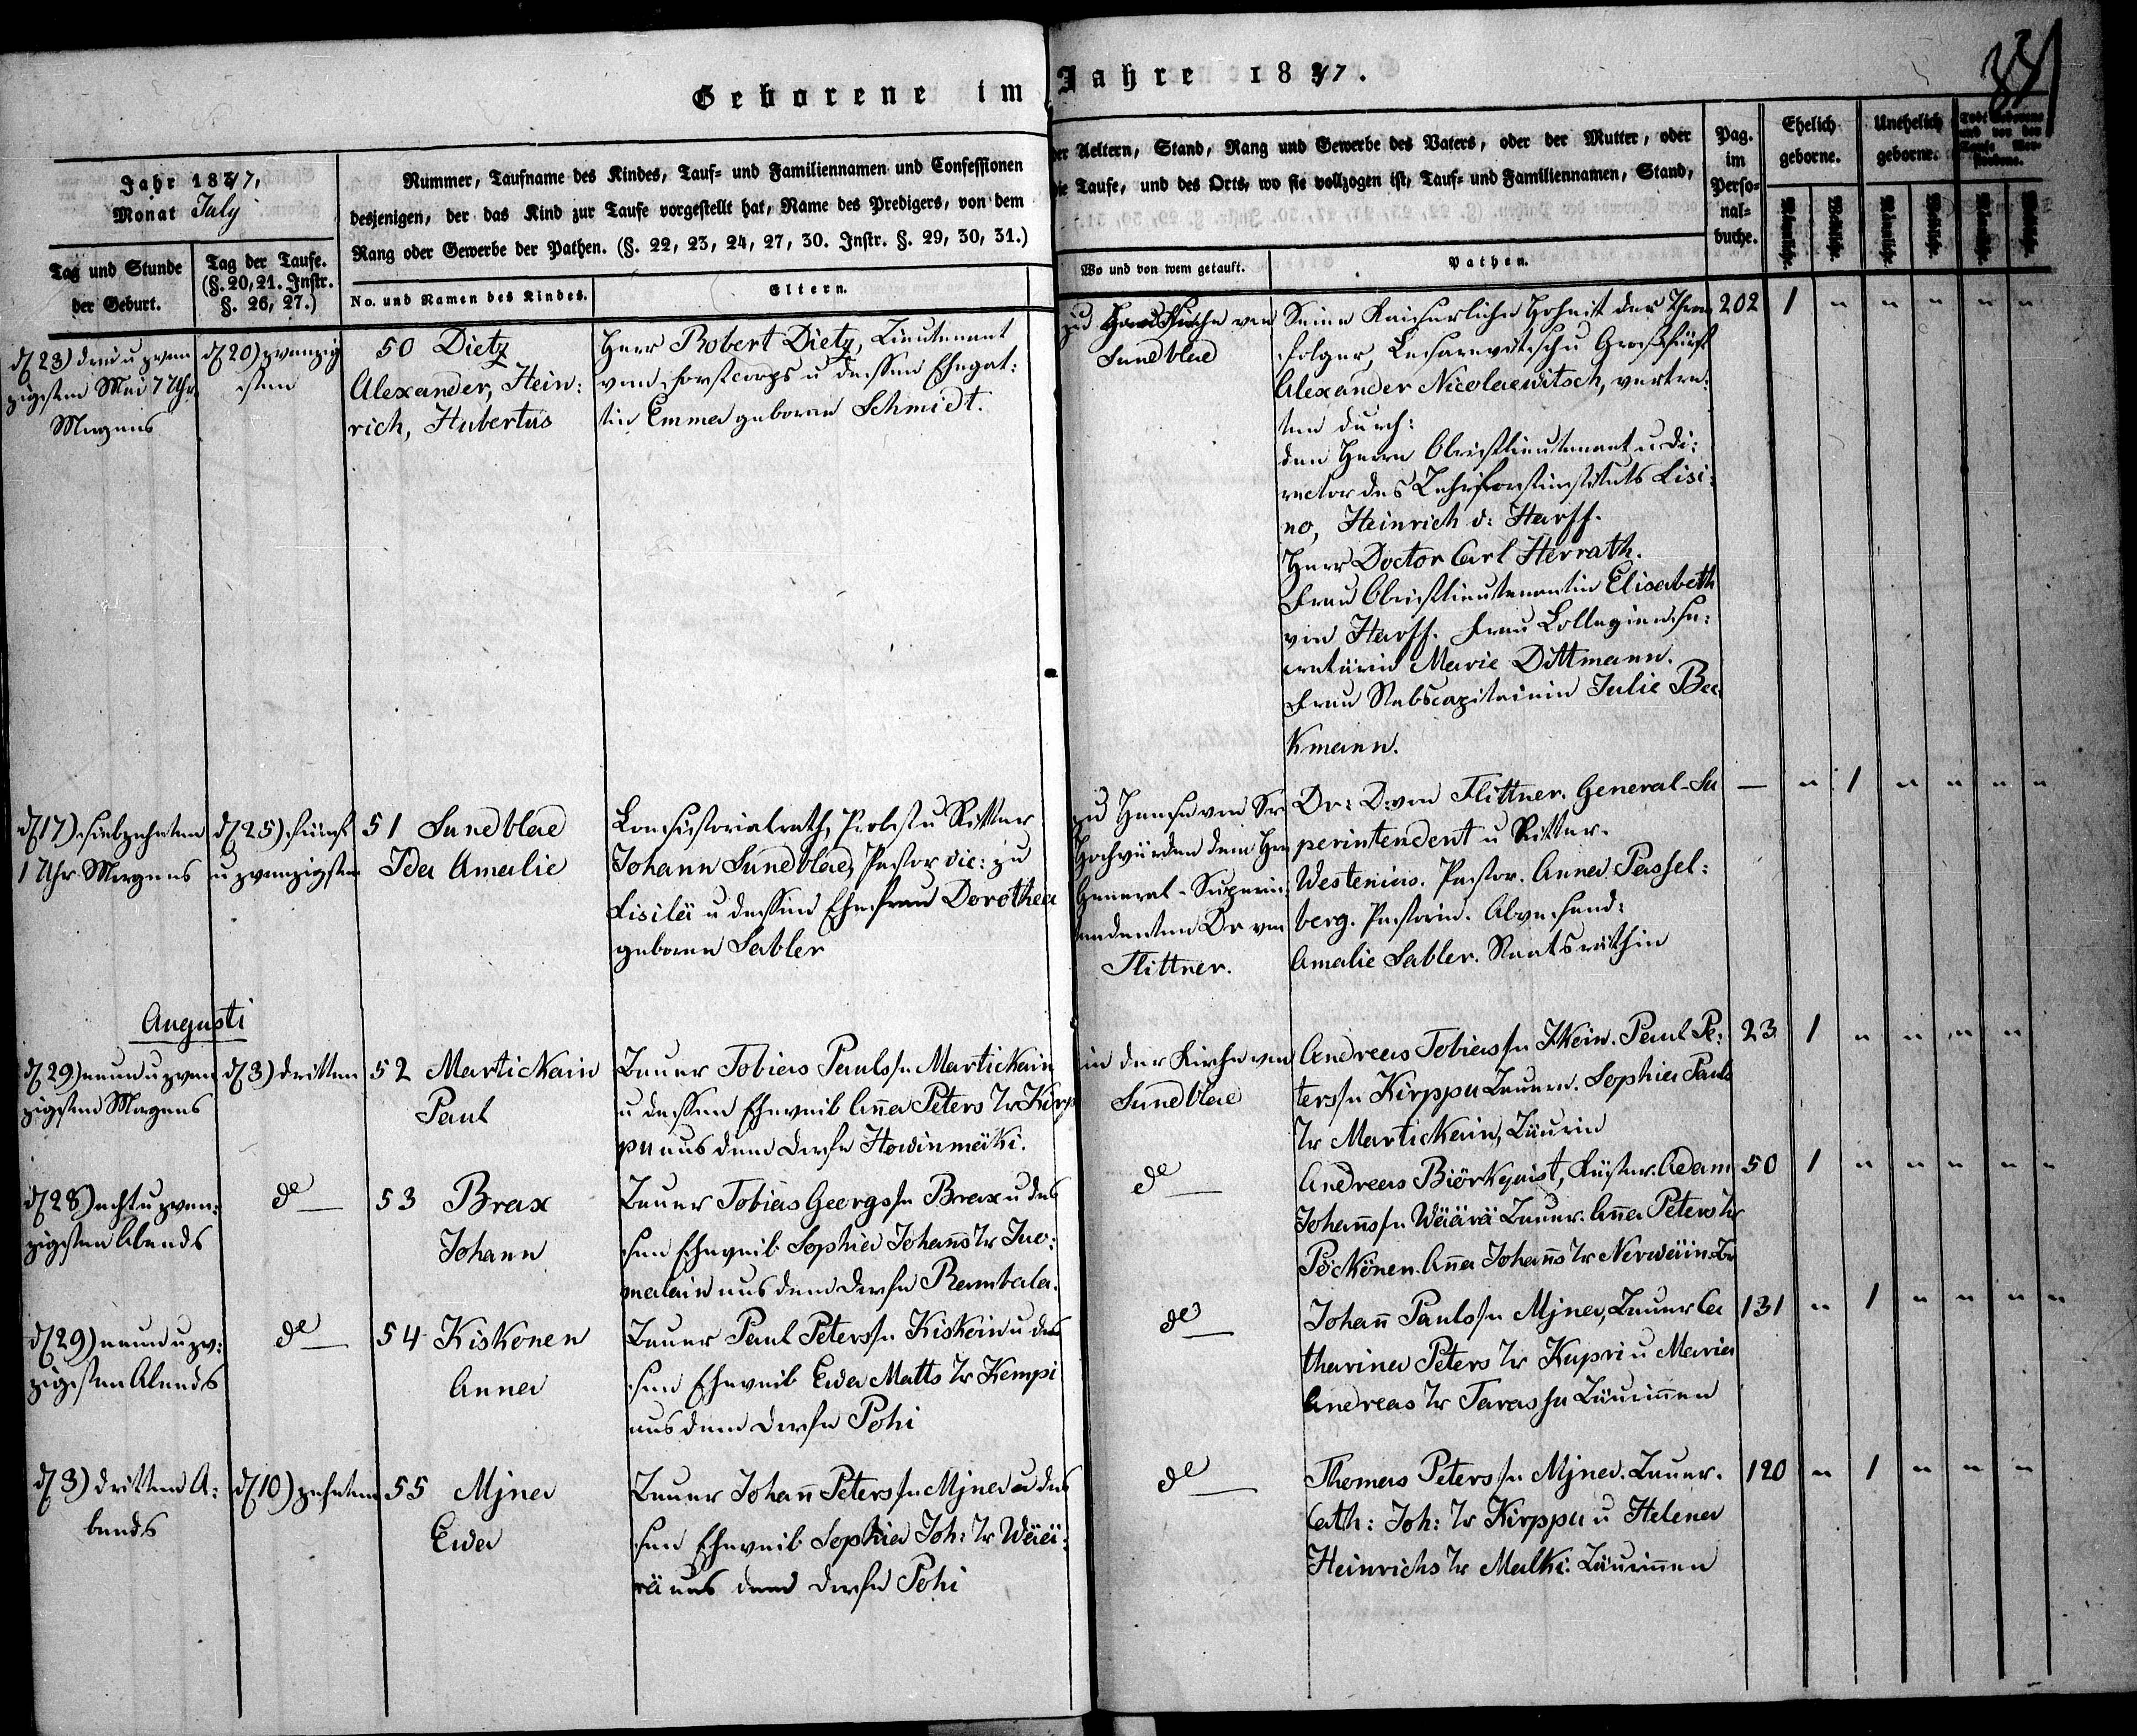 Geborene im Jahre 1847.
34
Jahr 1847,
Monat July
Tag und Stunde
der Geburt.
Tag der Taufe.
(§. 20, 21. Instr.
§. 26, 27.)
Nummer, Taufname des Kindes, Tauf- und Familiennamen und Confessionen
desjenigen, der das Kind zur Taufe vorgestellt hat, Name des Predigers, von dem
Rang oder Gewerbe der Pathen. (§. 22, 23, 24, 27, 30. Instr. §. 29, 30, 31.)
No. und Namen des Kindes.
Eltern.
der Aeltern, Stand, Rang und Gewerbe des Vaters, oder der Mutter, oder
die Taufe, und des Orts, wo sie vollzogen ist, Tauf- und Familiennamen, Stand,
Wo und von wem getauft.
Pathen.
Pag.
im
Perso-
nal-
buche.
Ehelich
geborne.
Unehelich
geborne.
Männliche.
Weibliche.
Männliche.
Weibliche.
Männliche.
Weibliche.
d. 23) drei u zwan
zigsten Mai 7 Uhr
Morgens
d. 20) zwanzig
sten
50 Dietz
Alexander, Hein:
rich, Hubertus
Herr Robert Dietz, Lieutenant
vom Forstcorps u dessen Ehegat:
tin Emma geborne Schmidt.
zu Hause von
Sundblad
Seine Kaiserliche Hoheit der Thron
folger, Cesarewitsch u Großfürst
Alexander Nicolaewitsch, vertre:
ten durch:
den Herrn Obristlieutenant u Di:
rector des Lehrforstinstituts Lisi:
no, Heinrich v: Harff.
Herr Doctor Carl Herrath.
Frau Obristlieutenantin Elisabeth
von Harff. Frau Collegiense:
cretärin Marie Dittmann.
Frau Stabscapitainin Julie Bec
kmann.
202 1 " " " " "
d. 17) siebzehnten
1 Uhr Morgens
d. 25) fünf
u zwanzigsten
51 Sundblad
Ida Amalie
Consistorialrath, Probst u Ritter
Johann Sundblad, Pastor vic: zu
Lisilä u dessen Ehefrau Dorothea
geborne Sabler
zu Hause von Sr
Hochwürden dem Hrn
General-Superin:
tendenten Dr von
Flittner.
Dr: D: von Flittner. General-Su
perintendent u Ritter.
Westenius. Pastor. Anna Passel:
berg. Pastorin. Abwesend:
Amalie Sabler. Staatsräthin
— " 1 " " " "
Augusti
d. 29) neun u zwan
zigsten Morgens
d. 3) dritten
52 Martickain
Paul
Bauer Tobias Pauls/n Martickain
u dessen Eheweib Anna Peters Tr Kirp
pu aus dem Dorfe Howinmäki.
in der Kirche von
Sundblad
Andreas Tobias/n Ikein. Paul Pe:
ters/n Kirppu Bauern. Sophia Pauls
Tr Martickain, Bäurin
23 1 " " " "
d. 28) acht u zwan:
zigsten Abends
do —
53 Brax
Johann
Bauer Tobias Georgs/n Brax u des
sen Eheweib Sophia Johanns Tr Juo:
malain aus dem Dorfe Rambala.
do —
Andreas Biörkqvist, Küster. Adam
Johanns/n Wäärä Bauer. Anna Peters Tr
Pöckönen. Anna Johanns Tr Nerwäin. Br
50 1 " " " " "
d. 29) neun u zw:
zigsten Abends
do —
54 Kiskonen
Anna
Bauer Paul Peters/n Kiskoin u des
sen Eheweib Ewa Matts Tr Kempi
aus dem Dorfe Pohi
do —
Johann Pauls/n Mjna, Bauer Ca
tharina Peters Tr Kupri u Maria
Andreas Tr Tarassu Bäurinnen
131 " 1 " " " "
d. 3) dritten A:
bends
d. 10) zehnten
55 Mjna
Ewa
Bauer Johann Peters/n Mjna u des
sen Eheweib Sophia Joh: Tr Wää:
rä aus dem Dorfe Pohi
do —
Thomas Peters/n Mjna. Bauer.
Cath: Joh: Tr Kirppu u Helena
Heinrichs Tr Malki: Bäurinnen
120 " 1 " " "